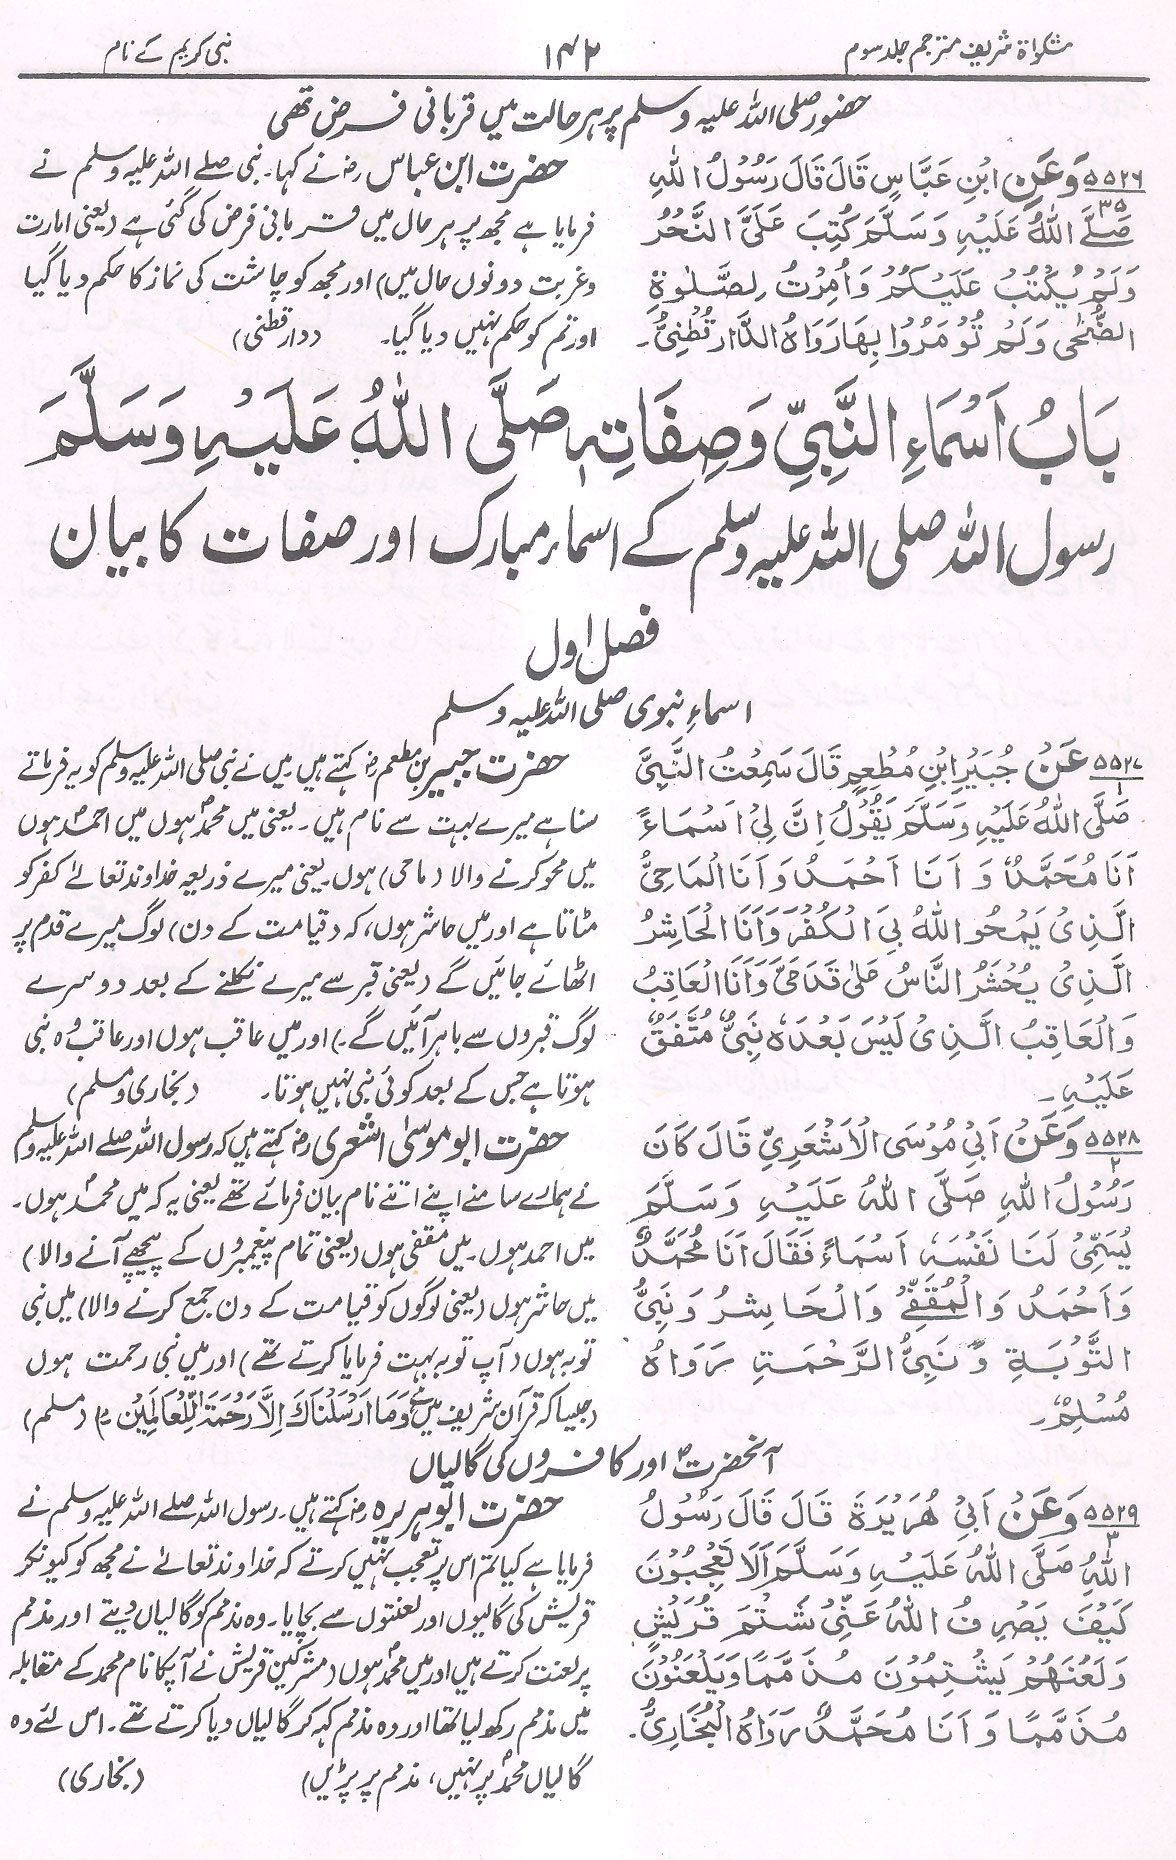 مشکواۃ شریف مترجم جلد سوم
۱۴۲
نبی کریم کے نام
حضور صلی اللہ علیہ وسلم پر ہر حالت میں قربانی فرض تھی
۵۵۲۶ وَعَنِ ابْنِ عَبَّاسٍ قَالَ قَالَ رَسُوْلُ اللّٰهِ
۳۵
صَلَّے اللّٰهُ عَلَيْهِ وَسَلَّمَ كُتِبَ عَلَىَّ النَّحْرُ
وَلَمْ يُكْتَبْ عَلَيْكُمْ وَاُمِرْتُ بِصَلٰوةِ
الضُّحٰى وَلَمْ تُوْمَرُوْا بِهَا رَوَاهُ الدَّارَ قُطْنِىُّ۔
حضرت ابن عباس رض نے کہا۔ نبی صلے اللہ علیہ وسلم نے
فرمایا ہے مجھ پر ہر حال میں قربانی فرض کی گئی ہے (یعنی امارت
وغربت دونوں حال میں) اور مجھ کو چاشت کی نماز کا حکم دیا گیا
اور تم کو حکم نہیں دیا گیا۔ (دارقطنی)
بَابُ اَسْمَاءِ النَّبِيِّ وَصِفَاتِهٖ صَلَّى اللّٰهُ عَلَيْهِ وَسَلَّمَ
رسول اللہ صلی اللہ علیہ وسلم کے اسماء مبارک اور صفات کا بیان
فصل اول
اسماءِ نبوی صلی اللہ علیہ وسلم
۵۵۲۷ عَنْ جُبَيْرِ ابْنِ مُطْعِمٍ قَالَ سَمِعْتُ النَّبِىَّ
۱
صَلَّى اللّٰهُ عَلَيْهِ وَسَلَّمَ يَقُوْلُ اِنَّ لِىْ اَسْمَاءً
اَنَا مُحَمَّدٌ وَ اَنَا اَحْمَدُ وَ اَنَا الْمَاحِىُّ
الَّذِىْ يَمْحُو اللّٰهُ بِىَ الْكُفْرَ وَاَنَا الْحَاشِرُ
الَّذِىْ يُحْشَرُ النَّاسُ عَلٰى قَدَمَىَّ وَاَنَا الْعَاقِبُ
وَالْعَاقِبُ الَّذِىْ لَيْسَ بَعْدَهٗ نَبِىٌّ مُتَّفَقٌ
عَلَيْهِ۔
حضرت جبیر بن مطعم رض کہتے ہیں۔ میں نے نبی صلی اللہ علیہ وسلم کو یہ فرماتے
سنا ہے میرے بہت سے نام ہیں۔ یعنی میں محمدؐ ہوں میں احمدؐ ہوں
میں محو کرنے والا (ماحی) ہوں۔ یعنی میرے ذریعہ خداوند تعالےٰ کفر کو
مٹاتا ہے اور میں حاشر ہوں، کہ (قیامت کے دن) لوگ میرے قدم پر
اٹھائے جائیں گے (یعنی قبر سے میرے نکلنے کے بعد دوسرے
لوگ قبروں سے باہر آئیں گے۔) اور میں عاقب ہوں اور عاقب وہ نبی
ہوتا ہے جس کے بعد کوئی نبی نہیں ہوتا۔ (بخاری ومسلم)
۵۵۲۸ وَعَنْ اَبِىْ مُوْسَى الْاَشْعَرِىِّ قَالَ كَانَ
۲
رَسُوْلُ اللّٰهِ صَلَّى اللّٰهُ عَلَيْهِ وَسَلَّمَ
يُسَمِّىْ لَنَا نَفْسَهٗ اَسْمَاءً فَقَالَ اَنَا مُحَمَّدٌ
وَاَحْمَدُ وَالْمُقَفِّىْ وَالْحَاشِرُ وَنَبِىُّ
التَّوْبَةِ وَ نَبِىُّ الرَّحْمَةِ رَوَاهُ
مُسْلِمٌ۔
حضرت ابو موسیٰ اشعری رض کہتے ہیں کہ رسول اللہ صلے اللہ علیہ وسلم
نے ہمارے سامنے اپنے اتنے نام بیان فرمائے تھے یعنی یہ کہ میں محمدؐ ہوں۔
میں احمد ہوں۔ میں مقفی ہوں (یعنی تمام پیغمبروں کے پیچھے آنے والا)
میں حاشر ہوں (یعنی لوگوں کو قیامت کے دن جمع کرنے والا) میں نبی
توبہ ہوں (آپ توبہ بہت فرمایا کرتے تھے) اور میں نبی رحمت ہوں
(جیسا کہ قرآن شریف میں ہے وَمَا اَرْسَلْنَاكَ اِلَّا رَحْمَةً لِّلْعَالَمِيْنَ ۔) (مسلم)
آنحضرت ؐ اور کافروں کی گالیاں
۵۵۲۹ وَعَنْ اَبِىْ هُرَيْرَةَ قَالَ قَالَ رَسُوْلُ
۳
اللّٰهِ صَلَّى اللّٰهُ عَلَيْهِ وَسَلَّمَ اَلَا تَعْجَبُوْنَ
كَيْفَ يَصْرِفُ اللّٰهُ عَنِّىْ شَتْمَ قُرَيْشٍ
وَلَعْنَهُمْ يَشْتِمُوْنَ مُذَمَّمًا وَيَلْعَنُوْنَ
مُذَمَّمًا وَ اَنَا مُحَمَّدٌ رَوَاهُ الْبُخَارِىُّ۔
حضرت ابو ہریرہ رض کہتے ہیں۔ رسول اللہ صلے اللہ علیہ وسلم نے
فرمایا ہے کیا تم اس پر تعجب نہیں کرتے کہ خداوند تعالےٰ نے مجھ کو کیونکر
قریش کی گالیوں اور لعنتوں سے بچایا۔ وہ مذمم کو گالیاں دیتے اور مذمم
پر لعنت کرتے ہیں اور میں محمدؐ ہوں (مشرکین قریش نے آپکا نام محمد کے مقابلہ
میں مذمم رکھ لیا تھا اور وہ مذمم کہہ کر گالیاں دیا کرتے تھے۔ اس لئے وہ
گالیاں محمدؐ پر نہیں، مذمم پر پڑیں) (بخاری)